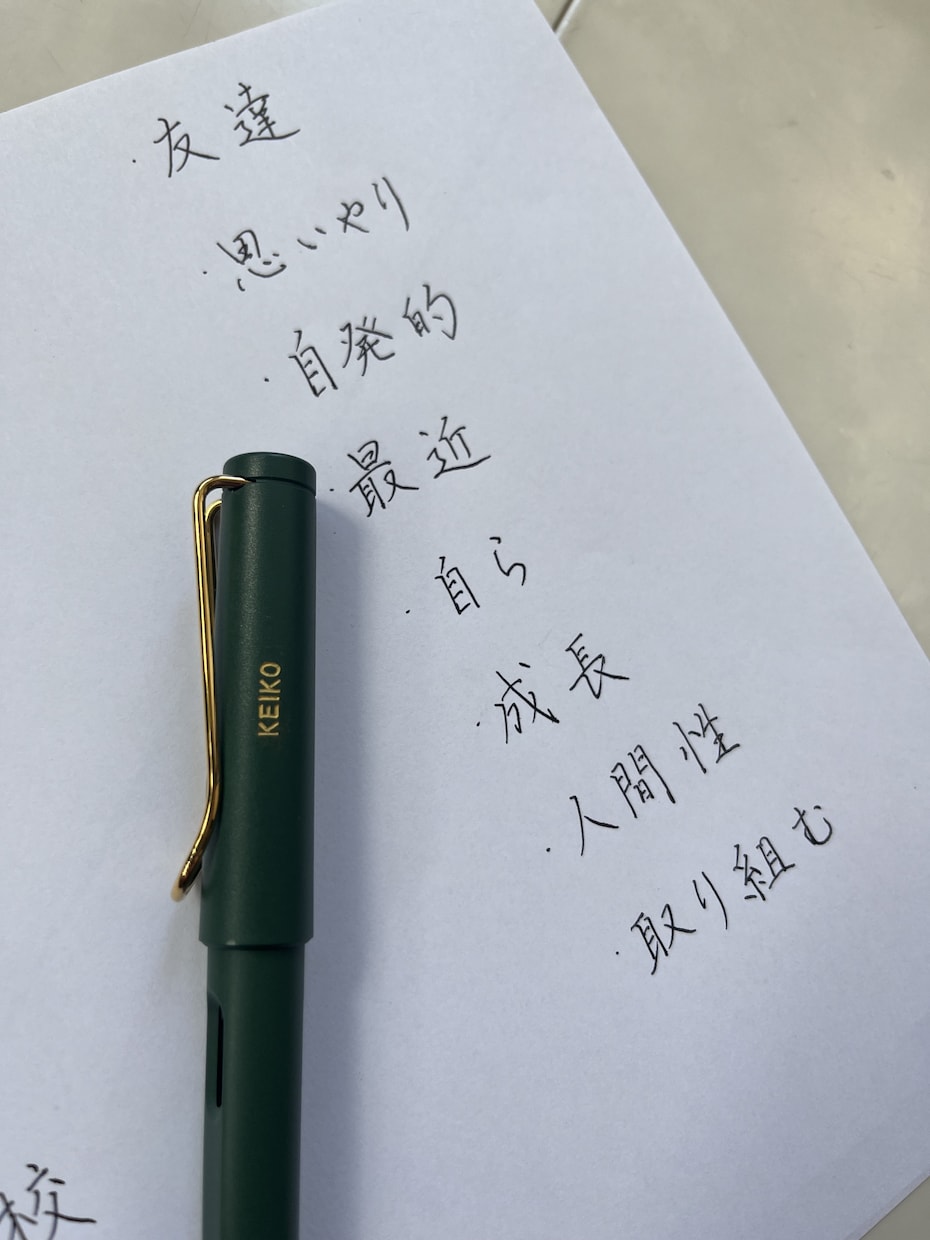 ・友達
・思いやり
・自発的
・最近
・自ら
・成長
・人間性
・取り組む
KEIKO
校